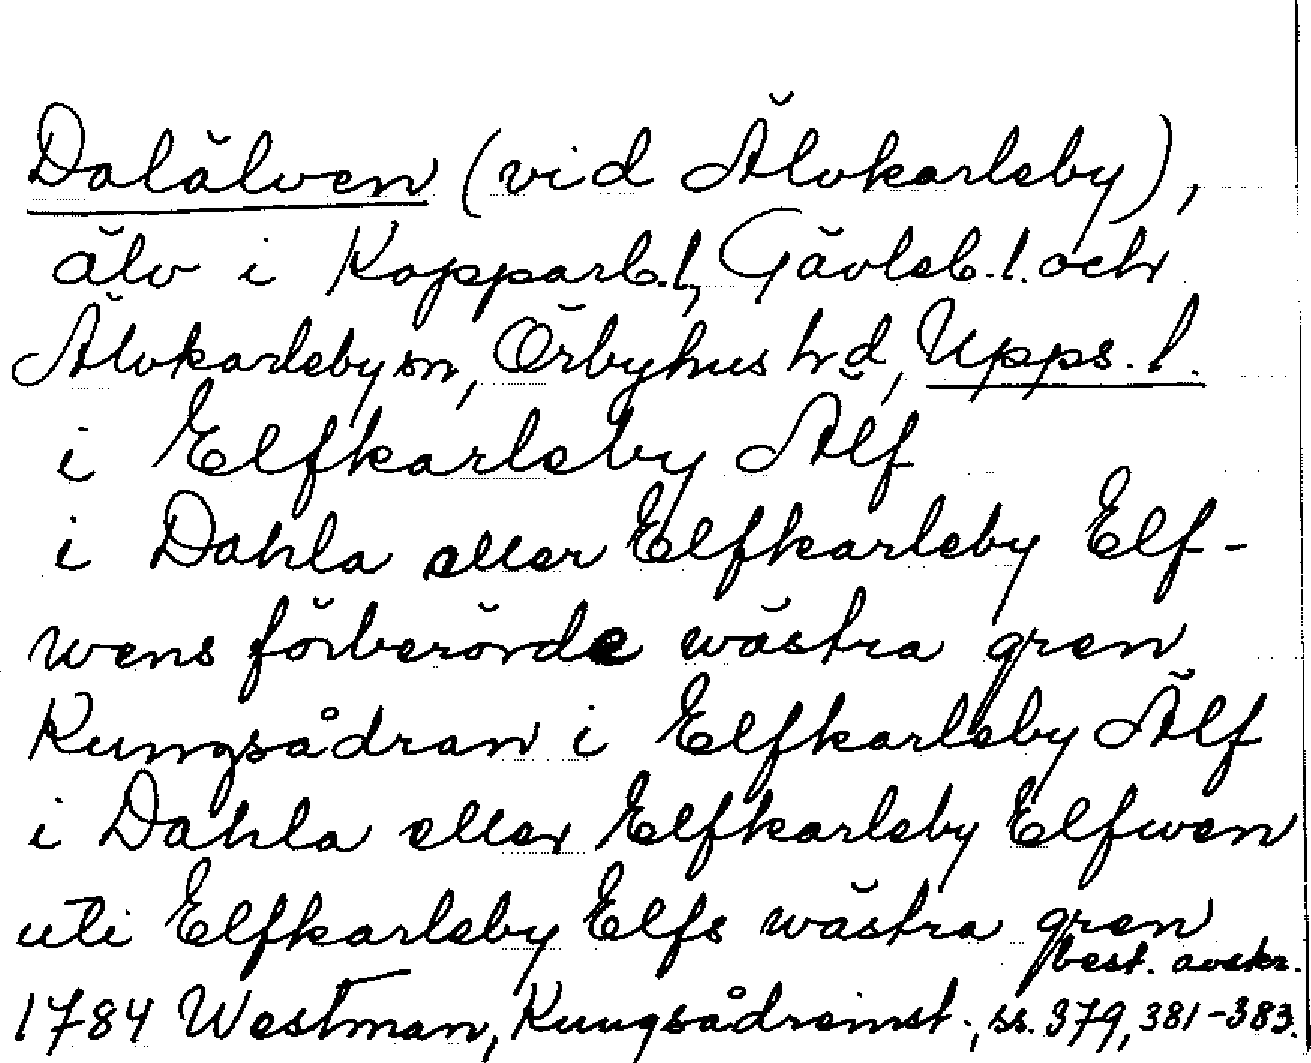 Dalälven (vid Älvkarleby),
älv i Kopparb.l., Gävleb.l. och
Älvkarleby sn, Örbyhus hd, Upps. l.
i Elfkarleby Älf
i Dahla eller Elfkarleby Elf-
wens förberörde wästra gren
Kungsådran i Elfkarleby Älf
i Dahla eller Elfkarleby Elfwen
uti Elfkarleby Elfs wästra gren
best. avskr.
1784 Westman, Kungsådreinst., ss. 379, 381-383.